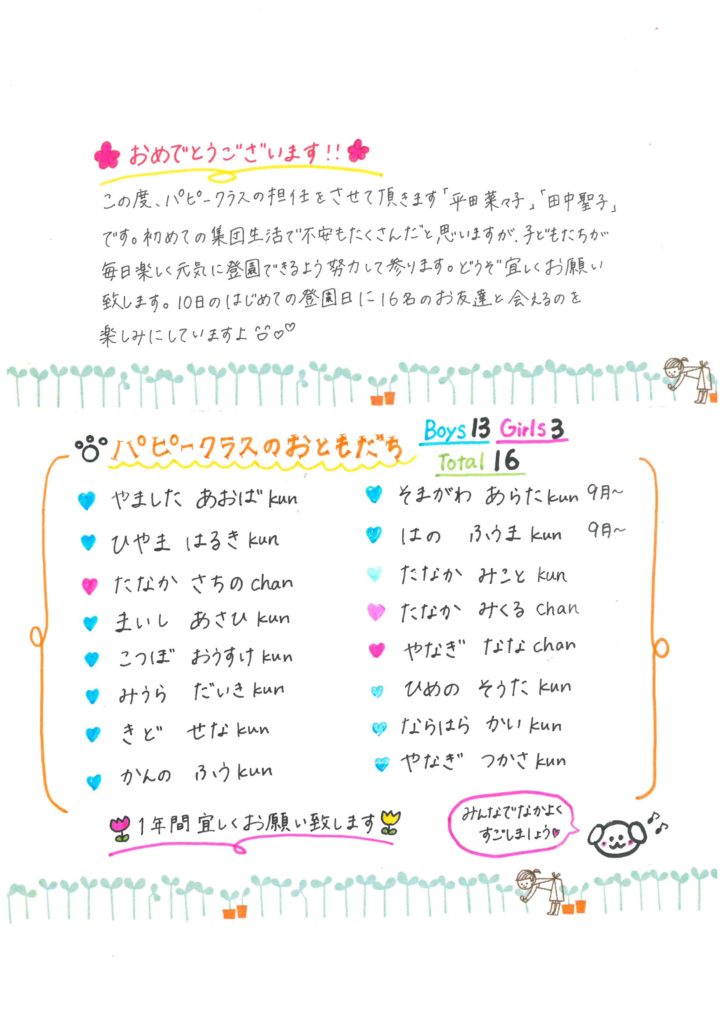 おめでとうございます!!
この度、パピークラスの担任をさせて頂きます「平田菜々子」「田中聖子」
です。初めての集団生活で不安もたくさんだと思いますが、子どもたちが
毎日楽しく元気に登園できるよう努力して参ります。どうぞ宜しくお願い
致します。10日のはじめての登園日に16名のお友達と会えるのを
楽しみにしていますよ
パピークラスのおともだち
Boys 13 Girls 3
Total 16
やました あおば kun
ひやま はるき kun
たなか さちの chan
まいし あさひ kun
こつぼ おうすけ kun
みうら だいき kun
きど せな kun
かんの ふう kun
そまがわ あらた kun 9月~
はの ふうま kun 9月~
たなか みこと kun
たなか みくる chan
やなぎ なな chan
ひめの そうた kun
ならはら かい kun
やなぎ つかさ kun
1年間宜しくお願い致します
みんなでなかよく
すごしましょう